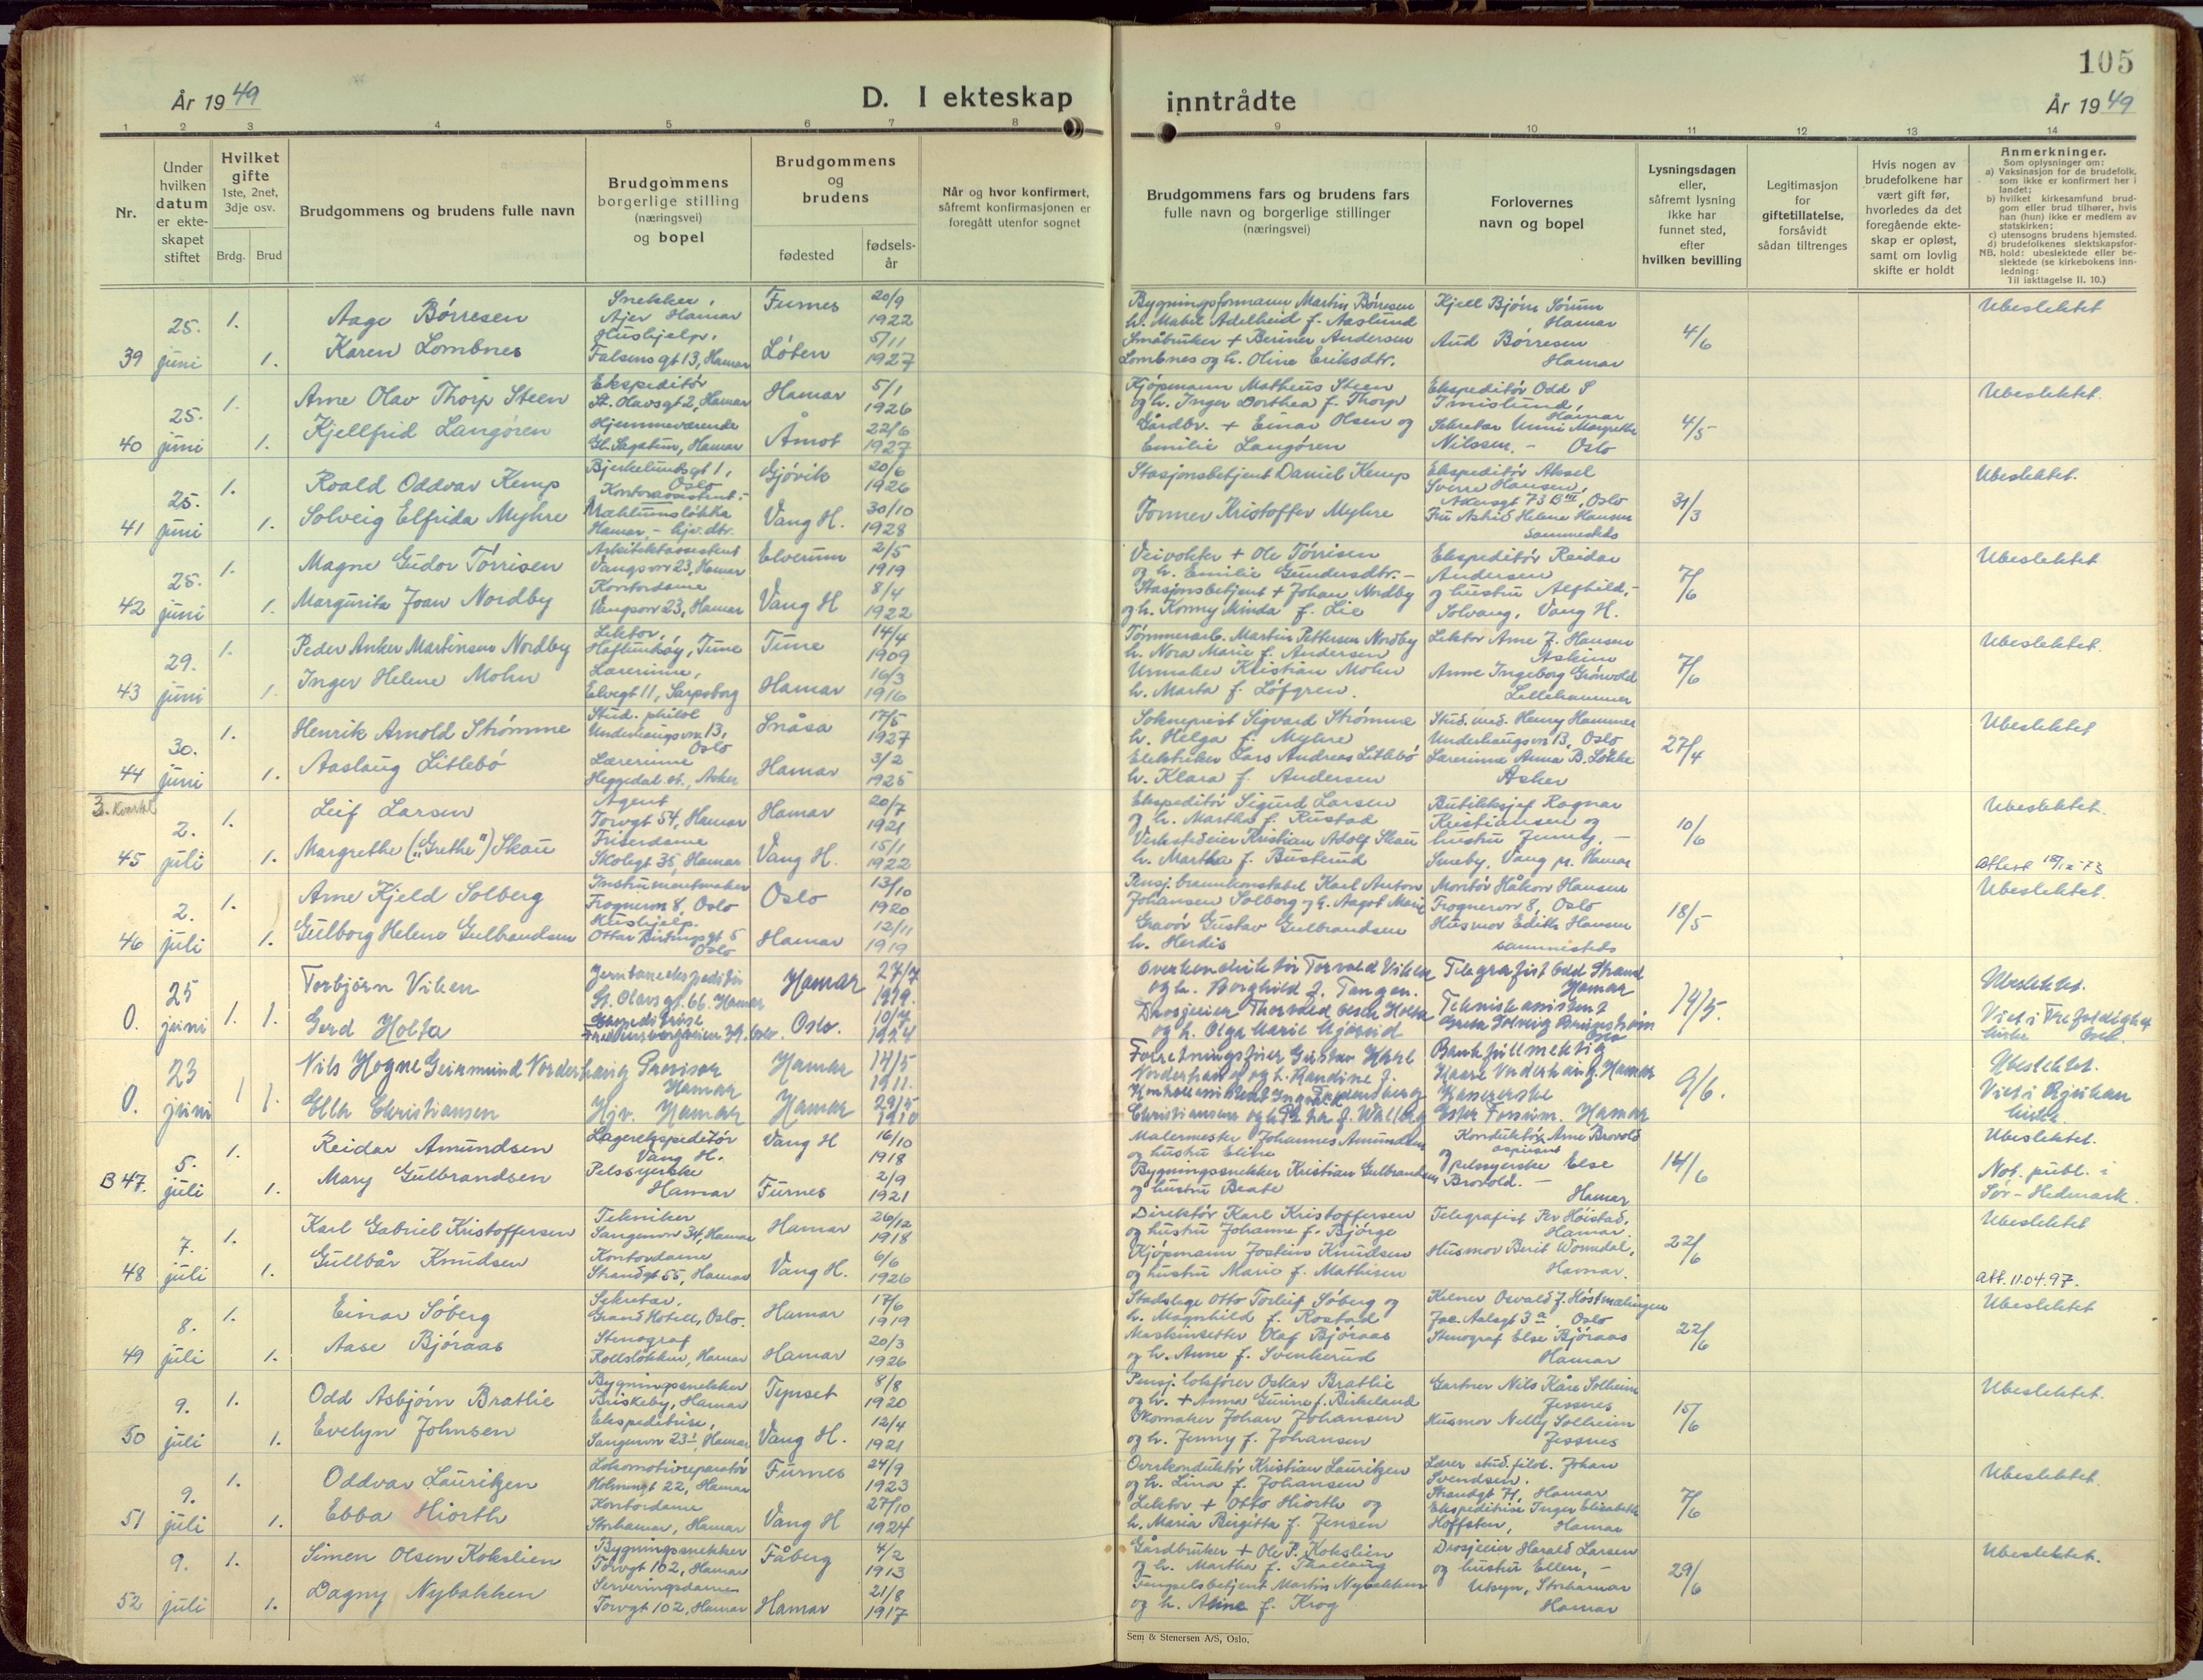 105
År 1949
D. I ekteskap
inntrådte
År 1949
1 2 3 4 5 6 7 8 9 10 11 12 13 14
Nr.
Under hvilken datum er ekteskapet stiftet
Hvilket gifte
1ste, 2net, 3dje osv.
Brdg. Brud
Brudgommens og brudens fulle navn
Brudgommens borgerlige stilling (næringsvei) og bopel
Brudgommens og brudens
fødested
fødsels-år
Når og hvor konfirmert, såfremt konfirmasjonen er foregått utenfor sognet
Brudgommens fars og brudens fars fulle navn og borgerlige stillinger (næringsvei)
Forlovernes navn og bopel
Lysningsdagen eller, såfremt lysning ikke har funnet sted, efter hvilken bevilling
Legitimasjon for giftetillatelse, forsåvidt sådan tiltrenges
Hvis nogen av brudefolkene har vært gift før, hvorledes da det foregående ekteskap er opløst, samt om lovlig skifte er holdt
Anmerkninger.
Som oplysninger om:
a) Vaksinasjon for de brudefolk, som ikke er konfirmert her i landet;
b) hvilket kirkesamfund brudgom eller brud tilhører, hvis han (hun) ikke er medlem av statskirken;
c) utensogns brudens hjemsted.
d) brudefolkenes slektskapsforhold: ubeslektede eller beslektede (se kirkebokens innledning:
NB.
Til iakttagelse II. 10.)
39 25. juni 1. Aage Børresen Snekker, Ajer Hamar Furnes 20/9 1922 Bygningsformann Martin Børresen h. Mabel Adelheid f. Aaslund Kjell Bjørn Sørum Hamar 4/6 Ubeslektet
1. Karen Lombnes Hushjelp, Falsens gt 13, Hamar Løten 5/11 1927 Småbruker + Beriner Andersen Lombnes og h. Oline Eriksdtr. Aud Børresen Hamar
40 25. juni 1. Arne Olav Thorp Steen Ekspeditør St. Olavsgt 2, Hamar Hamar 5/1 1926 Kjøpmann Matheus Steen og h. Inger Dorthea f. Thorp Ekspeditør Odd S Imislund, Hamar 4/5 Ubeslektet.
1. Kjellfrid Langøren Hjemmeværende Gl. Sagatun, Hamar Åmot 22/6 1927 Gårdbr. + Einar Olsen og Emilie Langøren Sekretær Unni Margrethe Nilssen, - Oslo
41 25. juni 1. Roald Oddvar Kemp Bjerkelundsgt 1, Oslo Kontorassistent Gjøvik 20/6 1926 Stasjonsbetjent Daniel Kemp Ekspeditør Aksel Sverre Hansen, Akersgt 73 B III, Oslo 31/3 Ubeslektet.
1. Solveig Elfrida Myhre Mæhlumsløkka Hamar, - hjv. dtr. Vang H. 30/10 1928 Former Kristoffer Myhre Fru Astrid Helene Hansen sammesteds
42 25. juni 1. Magne Gudor Tørrisen Arkitektassistent Vangsvn 23, Hamar Elverum 2/5 1919 Veivokter + Ole Tørrisen og h. Emilie Gundersdtr. - Ekspeditør Reidar Andersen 7/6 Ubeslektet
1. Margurita Joan Nordby Kontordame Vangsvn 23, Hamar Vang H 8/4 1922 Stasjonsbetjent + Johan Nordby og h. Konny Minda f. Lie og hustru Alfhild, - Solvang, Vang H.
43 29. juni 1. Peder Anker Martinsen Nordby Lektor, Haflundsøy, Tune Tune 14/4 1909 Tømmerarb. Martin Pettersen Nordby h. Nora Marie f. Andersen Lektor Arne J. Hansen Askim 7/6 Ubeslektet.
1. Inger Helene Mohn Lærerinne, Elvegt 11, Sarpsborg Hamar 16/3 1916 Urmaker Kristian Mohn h. Marta f. Løfgren. Anne Ingeborg Grønvold Lillehammer
44 30. juni 1. Henrik Arnold Strømme Stud. philol Underhaugsvn 13, Oslo Snåsa 17/5 1927 Sokneprest Sigvard Strømme h. Helga f. Myhre Stud. med. Henry Hammer Underhaugsvn 13, Oslo 27/4 Ubeslektet
1. Aaslaug Litlebø Lærerinne Heggedal st., Asker Hamar 3/2 1925 Elektriker Lars Andreas Litlebø h. Klara f. Andersen Lærerinne Anna B. Løkke Asker
3. Kvartal
45 2. juli 1. Leif Larsen Agent Torvgt 54, Hamar Hamar 20/7 1921 Ekspeditør Sigurd Larsen og h. Martha f. Rustad Butikksjef Ragnar Kristiansen og 10/6 Ubeslektet.
1. Margrethe ("Grethe") Skau Friserdame Skolegt 35, Hamar Vang H. 15/1 1922 Verkstedeier Kristian Adolf Skau h. Martha f. Busterud hustru Jenny, - Smeby, Vang pr. Hamar
46 2. juli 1. Arne Kjeld Solberg Instrumentmaker Frognervn 8, Oslo Oslo 13/10 1920 Pensj. brannkonstabel Karl Anton Johansen Solberg og h. Aagot Marie Montør Håkon Hansen Frognervn 8, Oslo 18/5 Ubeslektet.
1. Gulborg Helene Gulbrandsen Hushjelp. Oslo Hamar 12/11 1919 Gravør Gustav Gulbrandsen h. Herdis Husmor Edith Hansen sammesteds
0. 25 juni 1. 1. Torbjørn Viken Jernbaneekspeditør St. Olavsgt. 66. Hamar Hamar 27/7 1919. Overkonduktør Torvald Viken og h. Borghild f. Tangen. Telegrafist Odd Strand Hamar 14/5. Ubeslektet.
Gerd Holta Ekspeditrise Oslo. 10/7 1924 og h. Olga Marie Teknisk assistent Oslo Viet i Trefoldighetskirke Oslo.
0. 23 juni 1 1. Nils Hogne Geirmund Norderhaug Provisor Hamar Hamar 14/5 1911. Forretningsfører Gustav Norderhaug og h. Randine f. Bankfullmektig Kaare Norderhaug. Hamar 9/6. Ubeslektet.
Ella Christiansen Hjv. Hamar Hamar 29/5 1910 Kassererske Ester Fossum. Hamar Viet i Rjukan kirke.
B 47. 5. juli 1. Reidar Amundsen Lagerekspeditør Vang H. Vang H 16/10 1918 Malermester Johannes Amundsen og hustru Eline Konduktør Arne Brovold 14/6 Ubeslektet.
1. Mary Gulbrandsen Pelssyerske Hamar Furnes 2/9 1921 Bygningssnekker Kristian Gulbrandsen og hustru Beate og pelssyerske Else Brovold. - Hamar Not. publ. i Sør-Hedmark.
48 7. juli 1. Karl Gabriel Kristoffersen Tekniker Sangenvn 34, Hamar Hamar 26/12 1918 Direktør Karl Kristoffersen og hustru Johanne f. Bjørge Telegrafist Per Høistad, Hamar 22/6 Ubeslektet
1. Gullbår Knudsen Kontordame Strandgt 55, Hamar Vang H. 6/6 1926 Kjøpmann Jostein Knudsen og hustru Marie f. Mathisen Husmor Berit Womdal, Hamar. att. 11.04.97.
49 8. juli 1. Einar Søberg Sekretær, Grand Hotell, Oslo. Hamar 17/6 1919 Stadslege Otto Torleif Søberg og h. Magnhild f. Rostad Kelner Osvald J. Høstmælingen Jac. Aalsgt 3 a, Oslo 22/6 Ubeslektet
1. Aase Bjøraas Stenograf Rollsløkken, Hamar Hamar 20/3 1926 Maskinsetter Olaf Bjøraas og h. Anne f. Svenkerud Stenograf Else Bjøraas Hamar
50 9. juli 1. Odd Asbjørn Bratlie Bygningssnekker Briskeby, Hamar Tynset 8/8 1920 Pensj. lokfører Oskar Bratlie og h. + Anna Gunine f. Birkeland Gartner Nils Kåre Solheim Jessnes 15/6 Ubeslektet.
1. Evelyn Johnsen Ekspeditrise, Sangenvn 23 I, Hamar Vang H. 12/4 1921 Skomaker Johan Johansen og h. Jenny f. Johansen Husmor Nelly Solheim Jessnes
51 9. juli 1. Oddvar Lauritzen Lokomotivreparatør Holmengt 22, Hamar Furnes 24/9 1923 Overkonduktør Kristian Lauritzen og h. Lina f. Johansen Lærer stud. filol. Johan Svendsen. Strandgt 71, Hamar 7/6 Ubeslektet
1. Ebba Hiorth Kontordame Storhamar, Hamar Vang H 27/10 1924 Lektor + Otto Hiorth og h. Maria Birgitta f. Jensen Ekspeditrise Inger Elisabeth Hoffsten, Hamar
52 9. juli 1. Simen Olsen Kokslien Bygningssnekker Torvgt 102, Hamar Fåberg 4/2 1913 Gårdbruker + Ole P. Kokslien og h. Martha f. Drosjeeier Harald Larsen og hustru Ellen, - 29/6 Ubeslektet.
1. Dagny Nybakken Serveringsdame Torvgt 102, Hamar Hamar 21/8 1917 Fengselsbetjent Martin Nybakken og h. Anine f. Krog Utsyn, Storhamar Hamar
Sem & Stenersen A/S, Oslo.